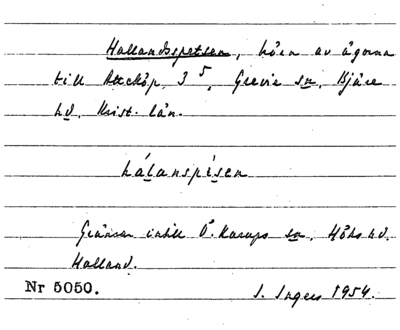 Hallandsspetsen, hörn av ägorna
till Attköp 3⁵, Grevie sn, Bjäre
hd. Krist. län.
hálanspìsen
Gränsar intill Ö. Karups sn, Höks hd.
Halland.
Nr 5050. I. Ingers 1954.